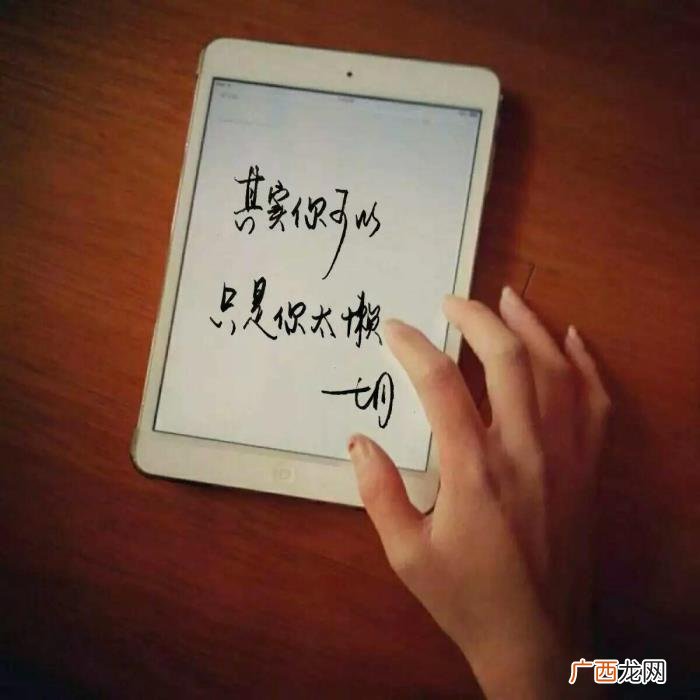 其实你可以
只是你太懒
七月
广西龙网